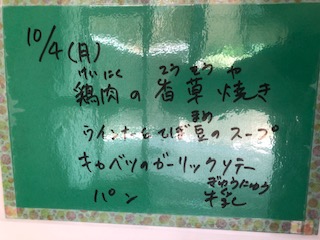 10/4(月)
けいにく こうそうや
鶏肉の香草焼き
まめ
ウインナーとひぎ豆のスープ
キャベツのガーリックソテー
ぎゅうにゅう
パン